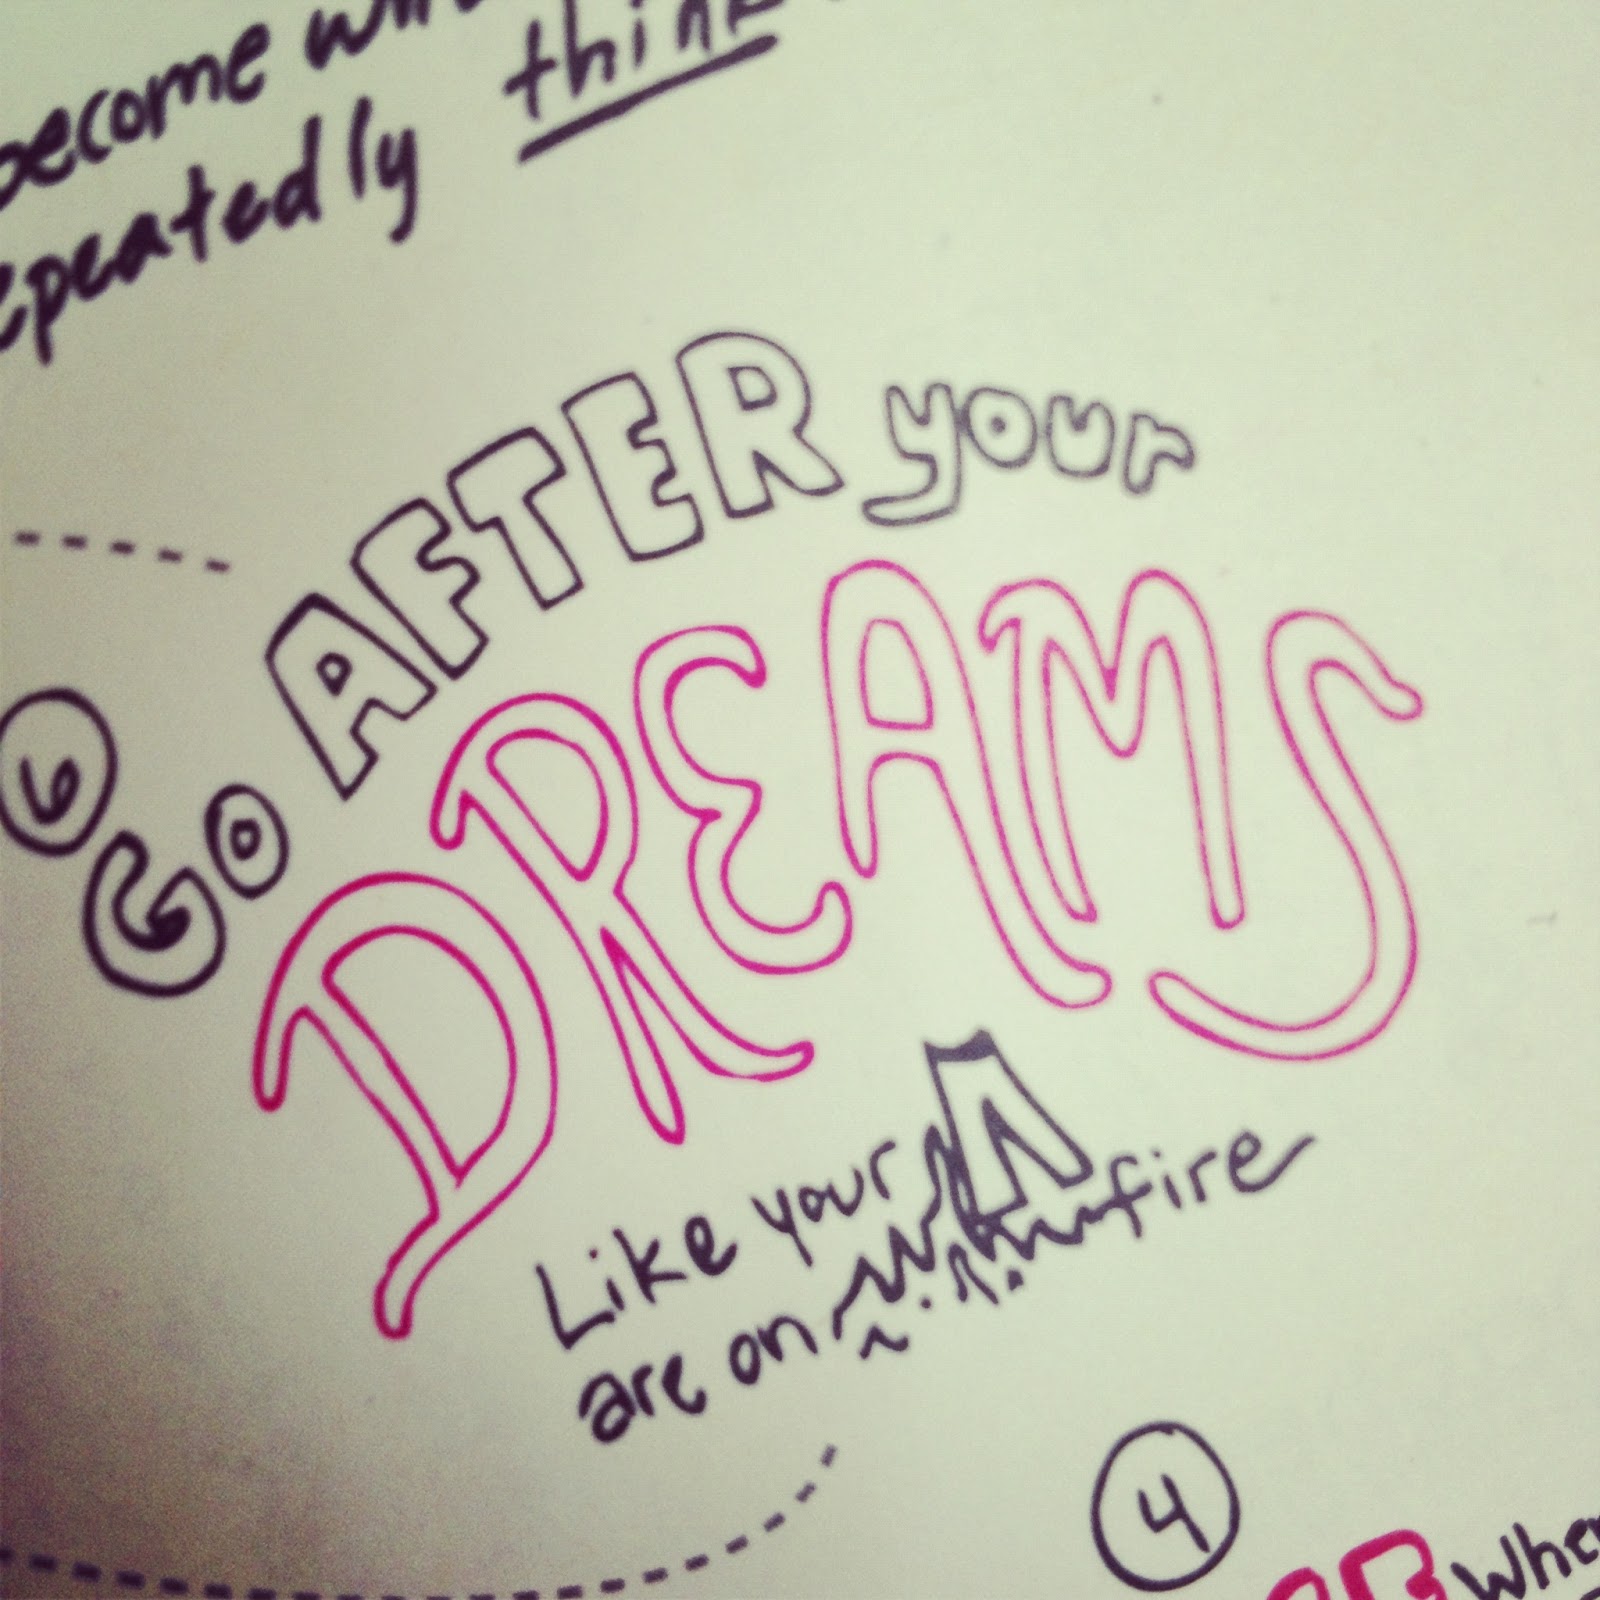 become
repeatedly think
6
GO AFTER your
DREAMS
Like your
are on fire
4